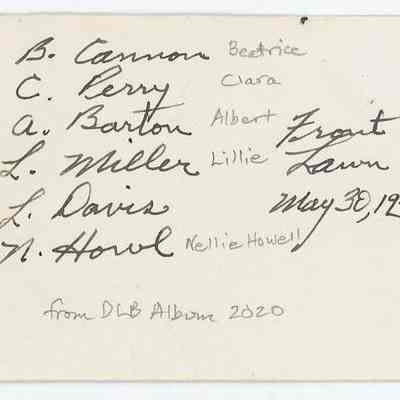 B. Cannon Beatrice
C. Perry Clara
A. Barton Albert
L. Miller Lillie
L. Davis
N. Howl Nellie Howell
Front
Lawn
May 30, 19
from DLB Album 2020